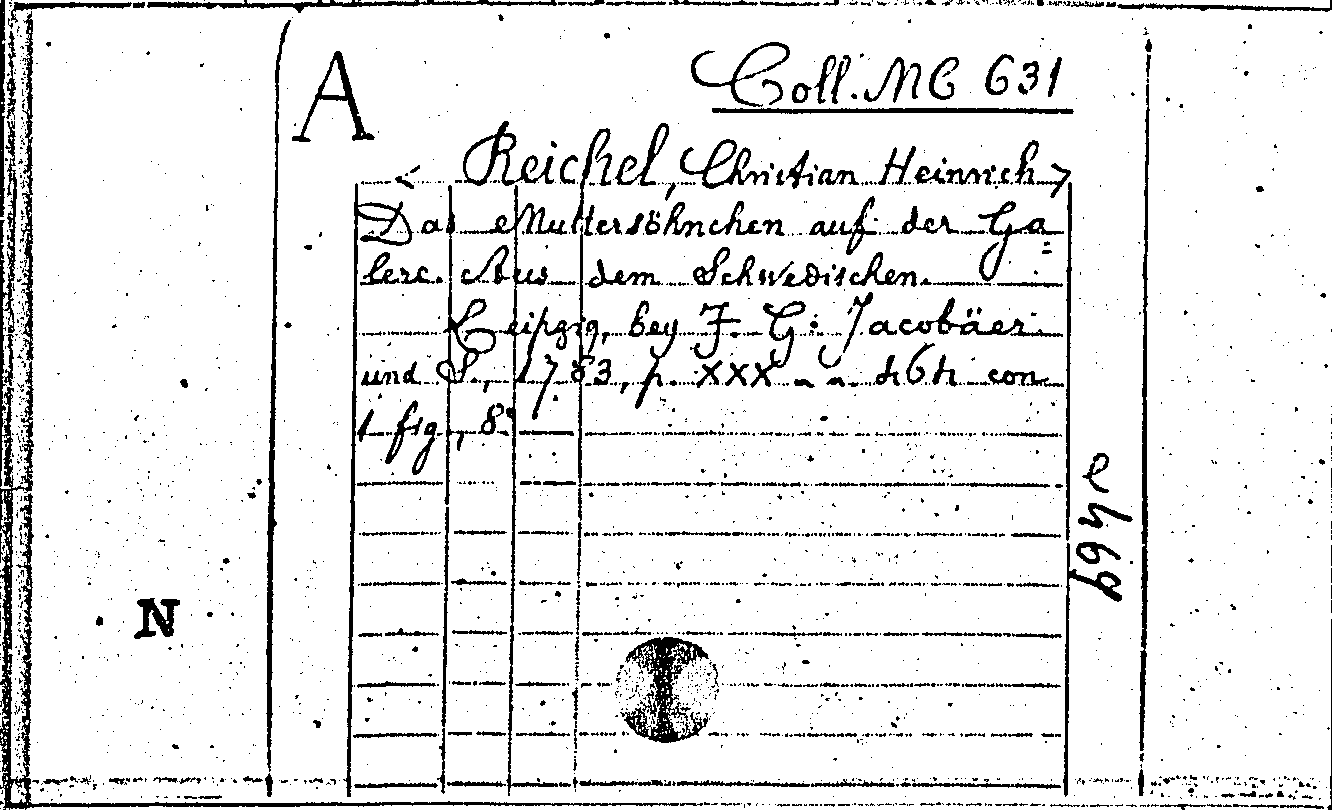 A
Coll. MC 631
< Reichel, Christian Heinrich >
Das Muttersöhnchen auf der Ga=
lere. Aus dem Schwedischen.
Leipzig, bey F. G. Jacobäer
und S., 1783, p. XXX
con
1 fig., 8°
N